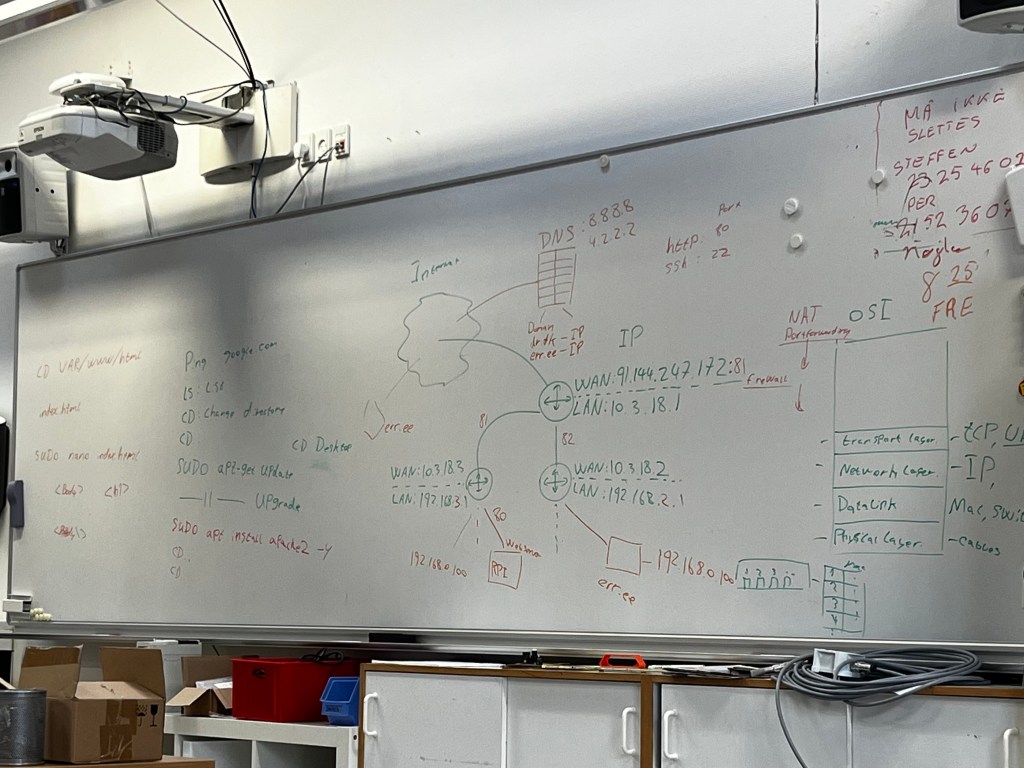 CD VAR/www/html
index.html
SUDO nano index.html
<body> <h1>
Ping google.com
LS: LSE
CD: Change directory
CD
CD Desktop
SUDO apt-get update
—11— UPgrade
SUDO apt install apache2 -y
CD
CD
Internet
DNS: 8.8.8.8
4.2.2.2
Port
http: 80
SSH: 22
err.ee - IP
IP
err.ee
WAN: 91.144.247.172:81
firewall
LAN: 10.3.18.1
81
82
WAN: 10.3.18.3
LAN: 192.168.3.1
WAN: 10.3.18.2
LAN: 192.168.2.1
80
192.168.0.100
RPI
err.ee
192.168.0.100
1 2 3 4
NAT
Portforwarding
OSI
transport laser - tCP, U
Network laser - IP,
DataLink Mac, Swi
Physical laser - Cables
MÅ IKKE
SLETTES
STEFFEN
23 25 46 02
PER
2152 3607
Nøgler
8 25
FRE
EPSON